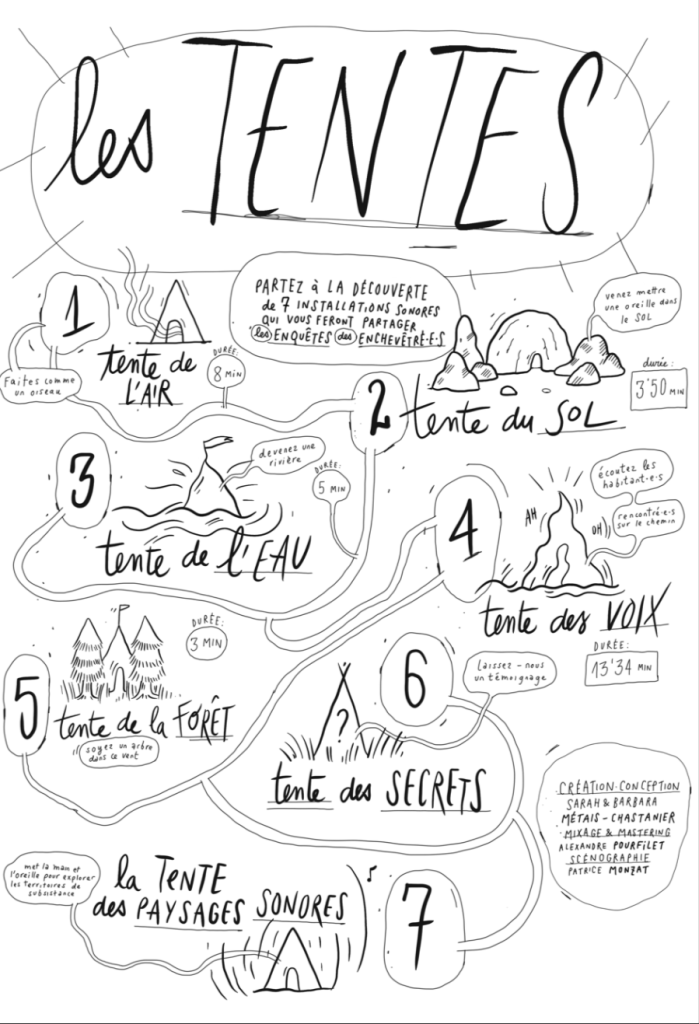 les TENTES
PARTEZ à LA DÉCOUVERTE
de 7 INSTALLATIONS SONORES
QUI VOUS FERONT PARTAGER
les ENQUÊTES des ENCHEVÊTRÉ·E·S
1
tente de
L'AIR
DURÉE:
8 MIN
Faites comme
un oiseau
2
tente du SOL
venez mettre
une oreille dans
le SOL
durée:
3'50 MIN
3
tente de l'EAU
devenez une
rivière
DURÉE:
5 MIN
4
tente des VOIX
AH
OH
écoutez les
habitant·e·s
rencontré·e·s
sur le chemin
DURÉE:
13'34 MIN
5
tente de la FORÊT
soyez un arbre
dans le vent
DURÉE:
3 MIN
6
?
tente des SECRETS
Laissez-nous
un témoignage
7
la TENTE
des PAYSAGES SONORES
met la main et
l'oreille pour explorer
les territoires de
subsistance
CRÉATION·CONCEPTION
SARAH & BARBARA
MÉTAIS-CHASTANIER
MIXAGE & MASTERING
ALEXANDRE POURFILET
SCÉNOGRAPHIE
PATRICE MONZAT